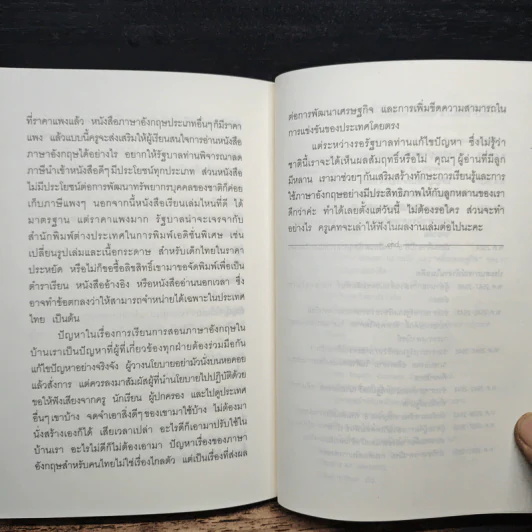 ที่ราคาแพงแล้ว หนังสือภาษาอังกฤษประเภทอื่นๆ ก็มีราคา
แพง แล้วแบบนี้ครูจะส่งเสริมให้ผู้เรียนสนใจการอ่านหนังสือ
ภาษาอังกฤษได้อย่างไร อยากให้รัฐบาลท่านพิจารณาลด
ภาษีนำเข้าหนังสือดีๆ มีประโยชน์ทุกประเภท ส่วนหนังสือ
ไม่มีประโยชน์ต่อการพัฒนาทรัพยากรบุคคลของชาติก็ค่อย
เก็บภาษีแพงๆ นอกจากนี้หนังสือเรียนเล่มไหนที่ดี ได้
มาตรฐาน แต่ราคาแพงมาก รัฐบาลน่าจะเจรจากับ
สำนักพิมพ์ต่างประเทศในการพิมพ์เอดิชั่นพิเศษ เช่น
เปลี่ยนรูปเล่มและเนื้อกระดาษ สำหรับเด็กไทยในราคา
ประหยัด หรือไม่ก็ขอซื้อลิขสิทธิ์เขามาขอจัดพิมพ์เพื่อเป็น
ตำราเรียน หนังสืออ้างอิง หรือหนังสืออ่านนอกเวลา ซึ่ง
อาจทำข้อตกลงว่าให้สามารถจำหน่ายได้เฉพาะในประเทศ
ไทย เป็นต้น
ปัญหาในเรื่องการเรียนการสอนภาษาอังกฤษใน
บ้านเราเป็นปัญหาที่ผู้ที่เกี่ยวข้องทุกฝ่ายต้องร่วมมือกัน
แก้ไขปัญหาอย่างจริงจัง ผู้วางนโยบายอย่ามัวนั่งบนหอคอย
แล้วสั่งการ แต่ควรลงมาสัมผัสผู้ที่นำนโยบายไปปฏิบัติด้วย
ขอให้ฟังเสียงจากครู นักเรียน ผู้ปกครอง และไปดูประเทศ
อื่นๆ เขาบ้าง จดจำเอาสิ่งดีๆ ของเขามาใช้บ้าง ไม่ต้องมา
นั่งสร้างเองก็ได้ เสียเวลาเปล่า อะไรดีก็เอามาปรับใช้ใน
บ้านเรา อะไรไม่ดีก็ไม่ต้องเอามา ปัญหาเรื่องของภาษา
อังกฤษสำหรับคนไทยไม่ใช่เรื่องไกลตัว แต่เป็นเรื่องที่ส่งผล
ต่อการพัฒนาเศรษฐกิจ และการเพิ่มขีดความสามารถใน
การแข่งขันของประเทศโดยตรง
แต่ระหว่างรอรัฐบาลท่านแก้ไขปัญหา ซึ่งไม่รู้ว่า
ชาตินี้เราจะได้เห็นผลสัมฤทธิ์หรือไม่ คุณๆ ผู้อ่านที่มีลูก
มีหลาน เรามาช่วยๆ กันเสริมสร้างทักษะการเรียนรู้และการ
ใช้ภาษาอังกฤษอย่างมีประสิทธิภาพให้กับลูกหลานของเรา
ดีกว่าค่ะ ทำได้เลยตั้งแต่วันนี้ ไม่ต้องรอใคร ส่วนจะทำ
อย่างไร ครูเคทจะเล่าให้ฟังในผลงานเล่มต่อไปนะคะ